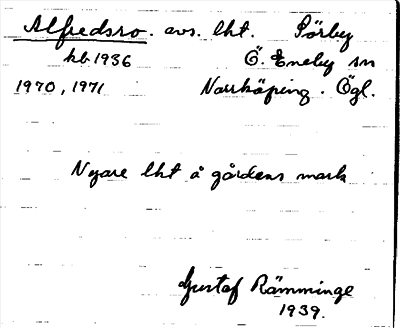 Alfredsro. avs. lht. Sörby
hb 1936 Ö. Eneby sn
1970, 1971 Norrköping. Ögl.
Nyare lht å gårdens mark
Gustaf Rämminge
1939.